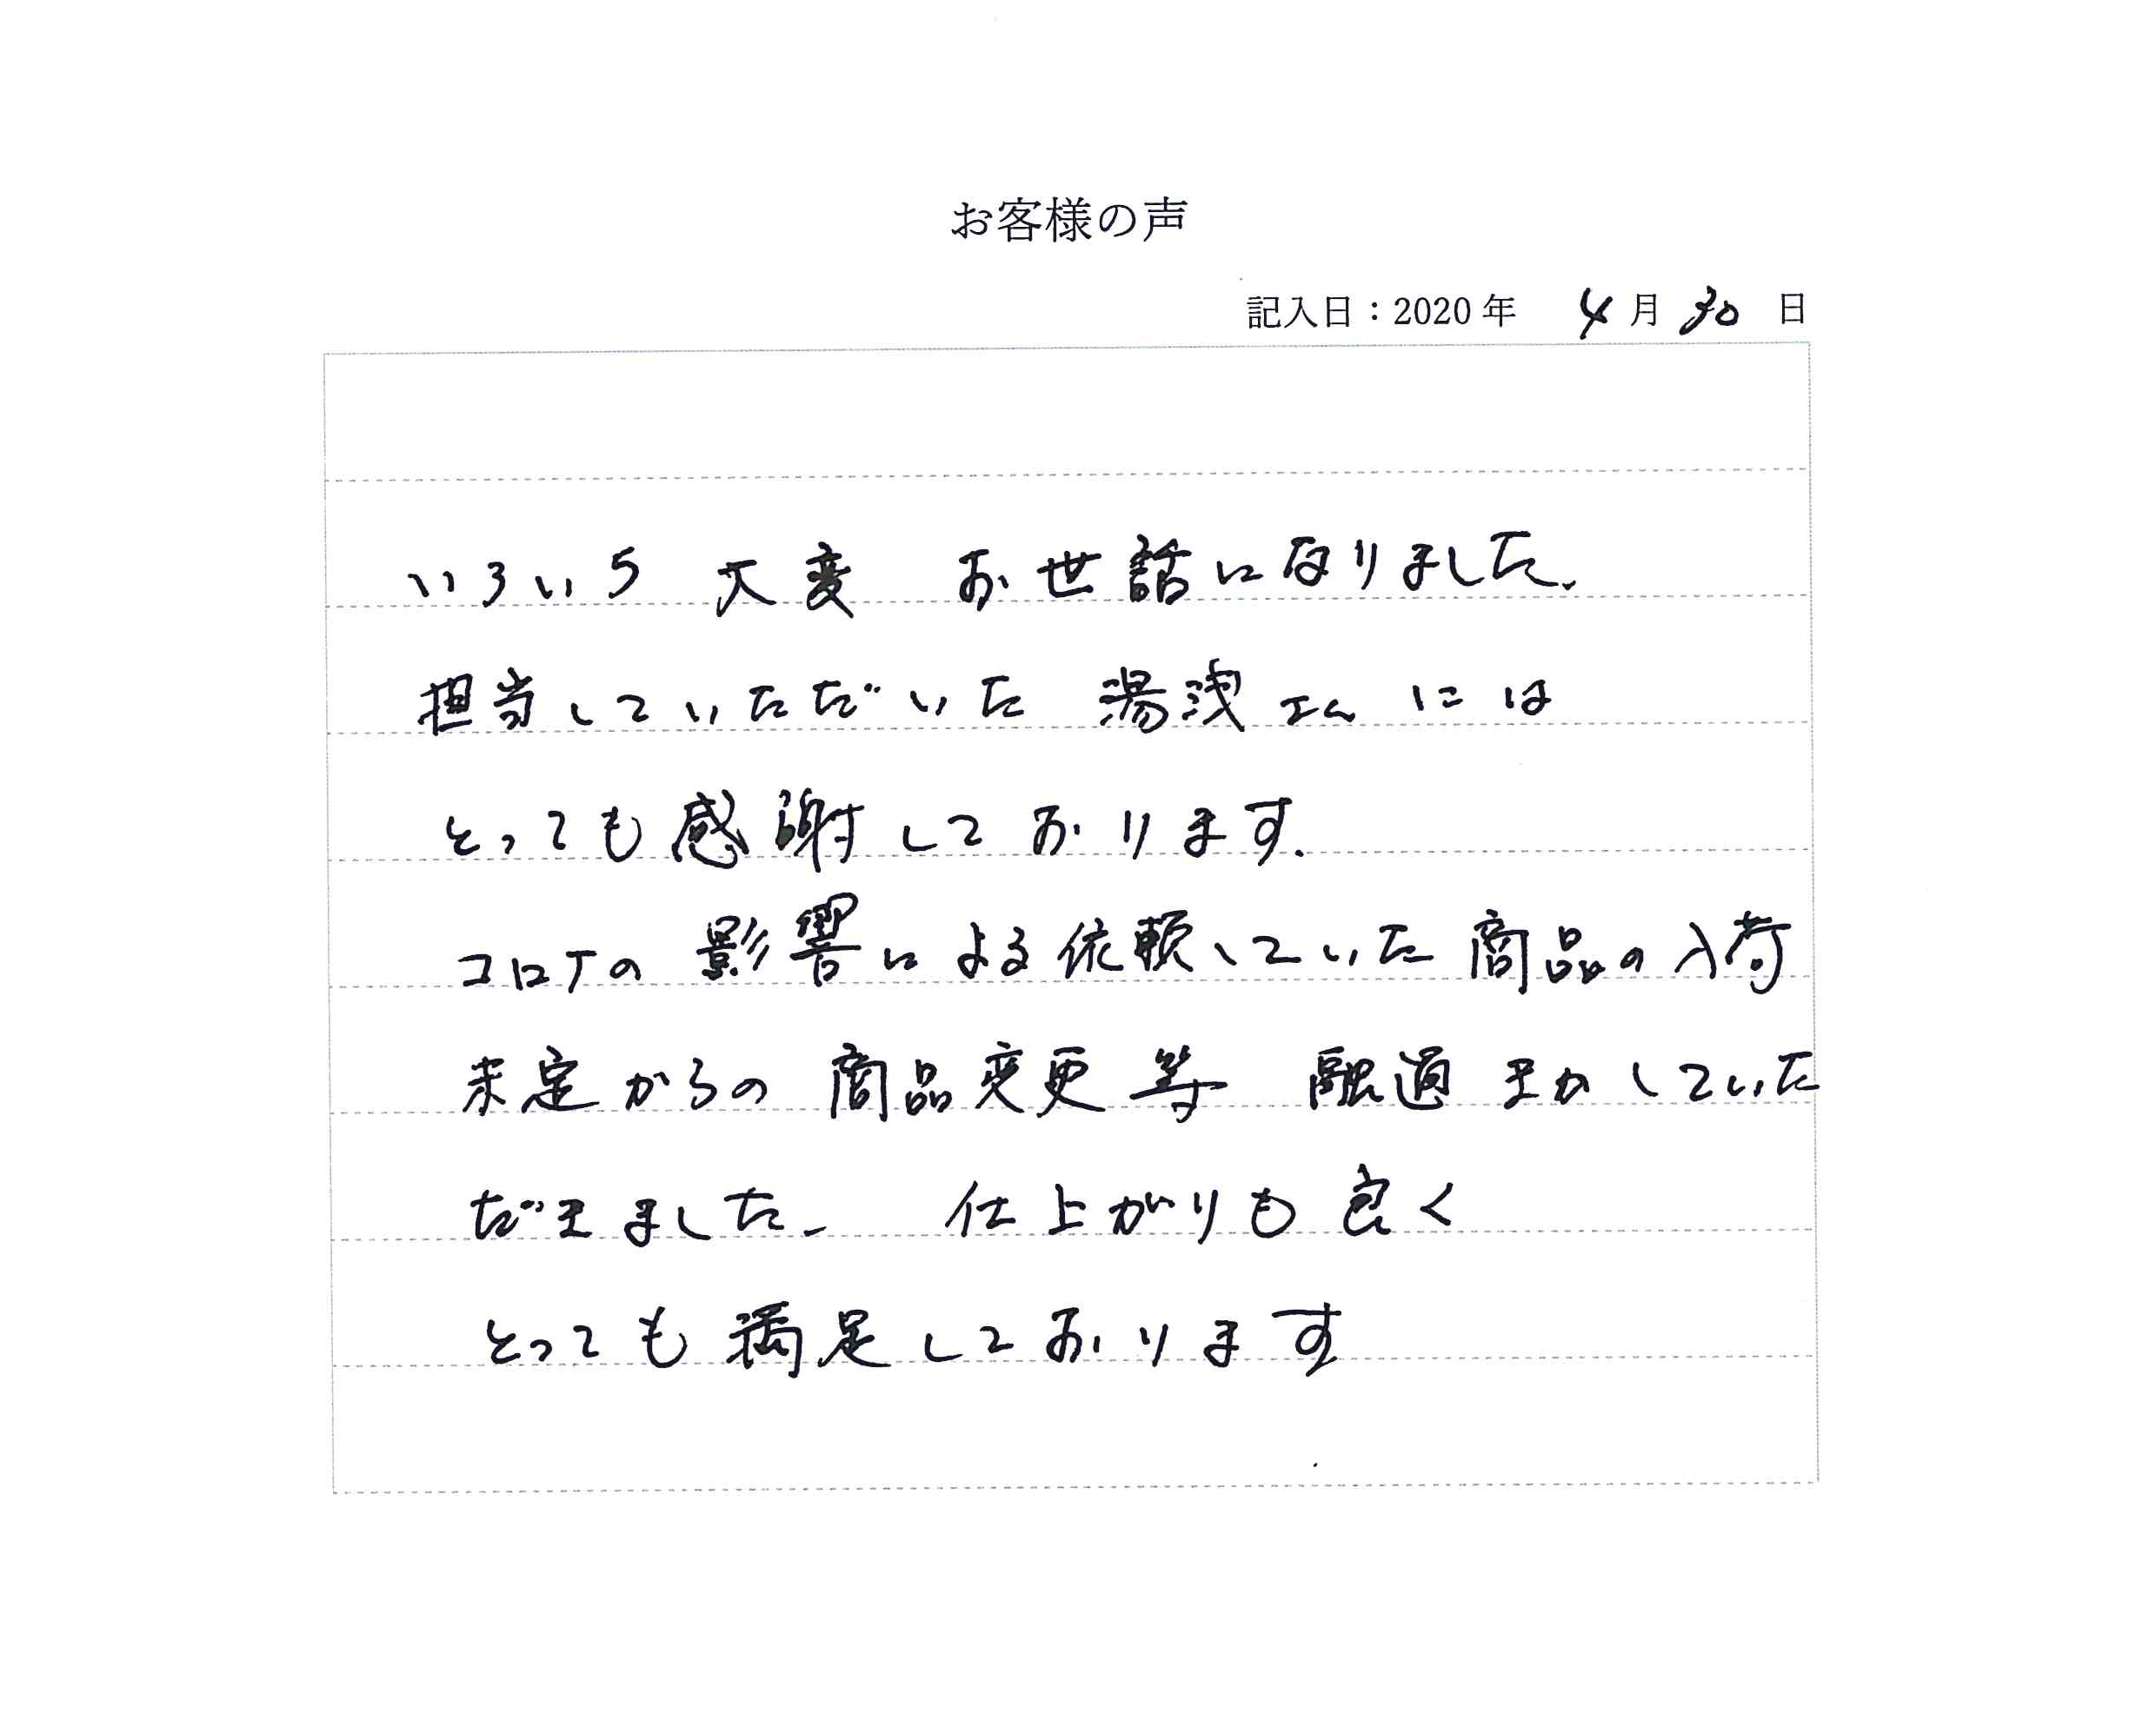 お客様の声
記入日：2020年 4月30日
いろいろ 大変 お世話になりました。
担当していただいた 湯浅さんには
とっても感謝しております.
コロナの影響による依頼していた商品の入荷
未定からの 商品変更等 融通きかしていた
だきました。 仕上がりも良く
とっても満足しております